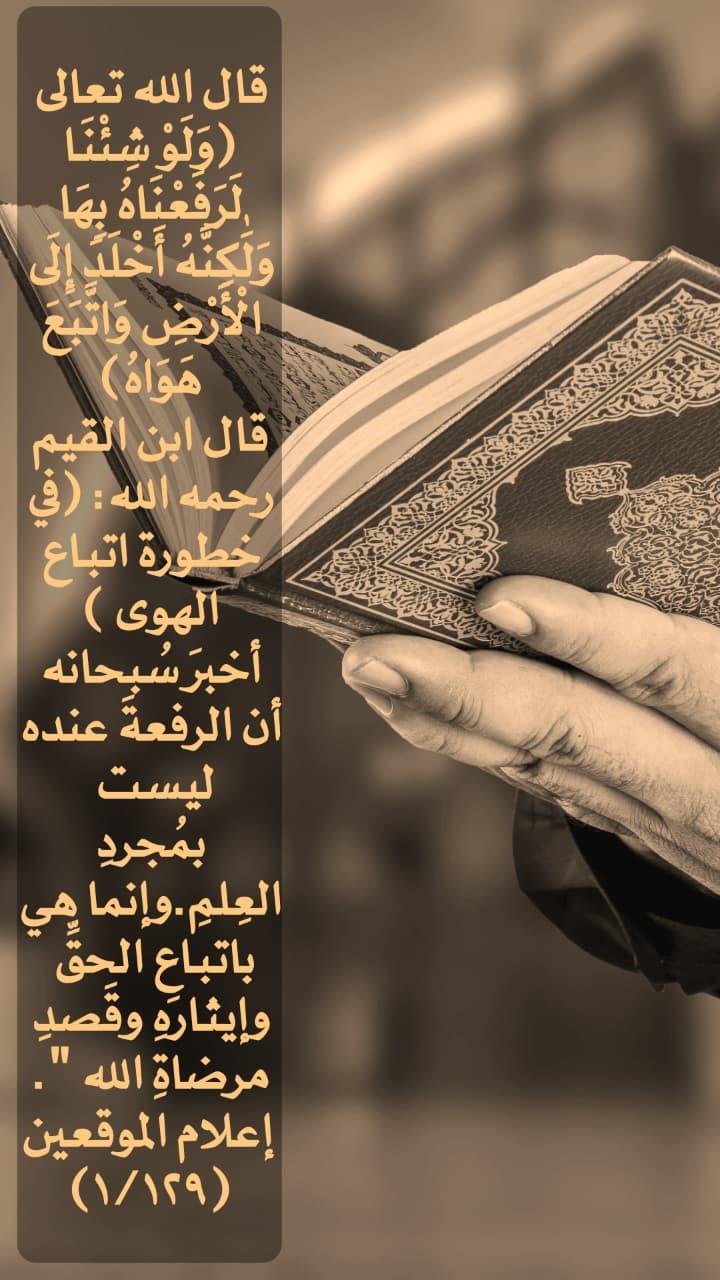 قال الله تعالى
(وَلَوْ شِئْنَا
لَرَفَعْنَاهُ بِهَا
وَلَٰكِنَّهُ أَخْلَدَ إِلَى
الْأَرْضِ وَاتَّبَعَ
هَوَاهُ)
قال ابن القيم
رحمه الله: (في
خطورة اتباع
الهوى )
أخبرَ سُبحانه
أن الرفعةَ عنده
ليست
بمُجردِ
العِلمِ.وإنما هي
باتباعِ الحقِّ
وإيثارهِ وقَصدِ
مرضاةِ الله ".
إعلام الموقعين
(١/١٢٩)